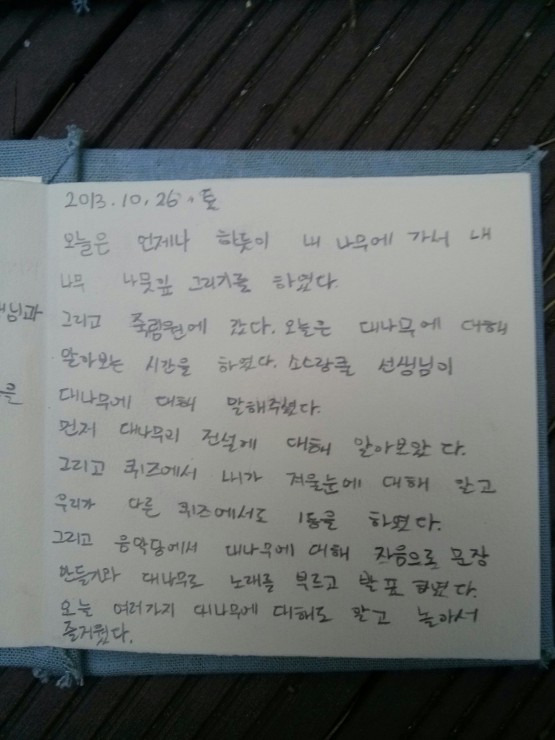 2013.10.26.토
오늘은 언제나 하듯이 내 나무에 가서 내
나무 나뭇잎 그리기를 하였다.
그리고 죽림원에 갔다. 오늘은 대나무에 대해
알아보는 시간을 하였다. 소스랑클 선생님이
대나무에 대해 말해주셨다.
먼저 대나무의 전설에 대해 알아보았다.
그리고 퀴즈에서 내가 겨울눈에 대해 알고
우리가 다른 퀴즈에서도 1등을 하였다.
그리고 음악당에서 대나무에 대해 자음으로 문장
만들기와 대나무로 노래를 부르고 발표 하였다.
오늘 여러가지 대나무에 대해도 알고 놀아서
즐거웠다.